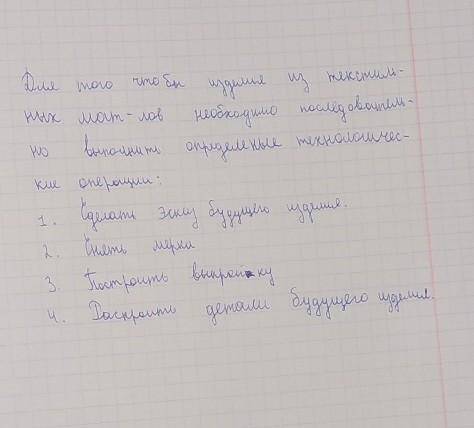 Для того чтобы изделия из текстиль-
ных мат-лов необходимо последователь-
но выполнить определеные технологичес-
кие операции:
1. Сделать эскиз будущего изделия.
2. Снять мерки
3. Построить выкройку
4. Раскроить детали будущего изделия.